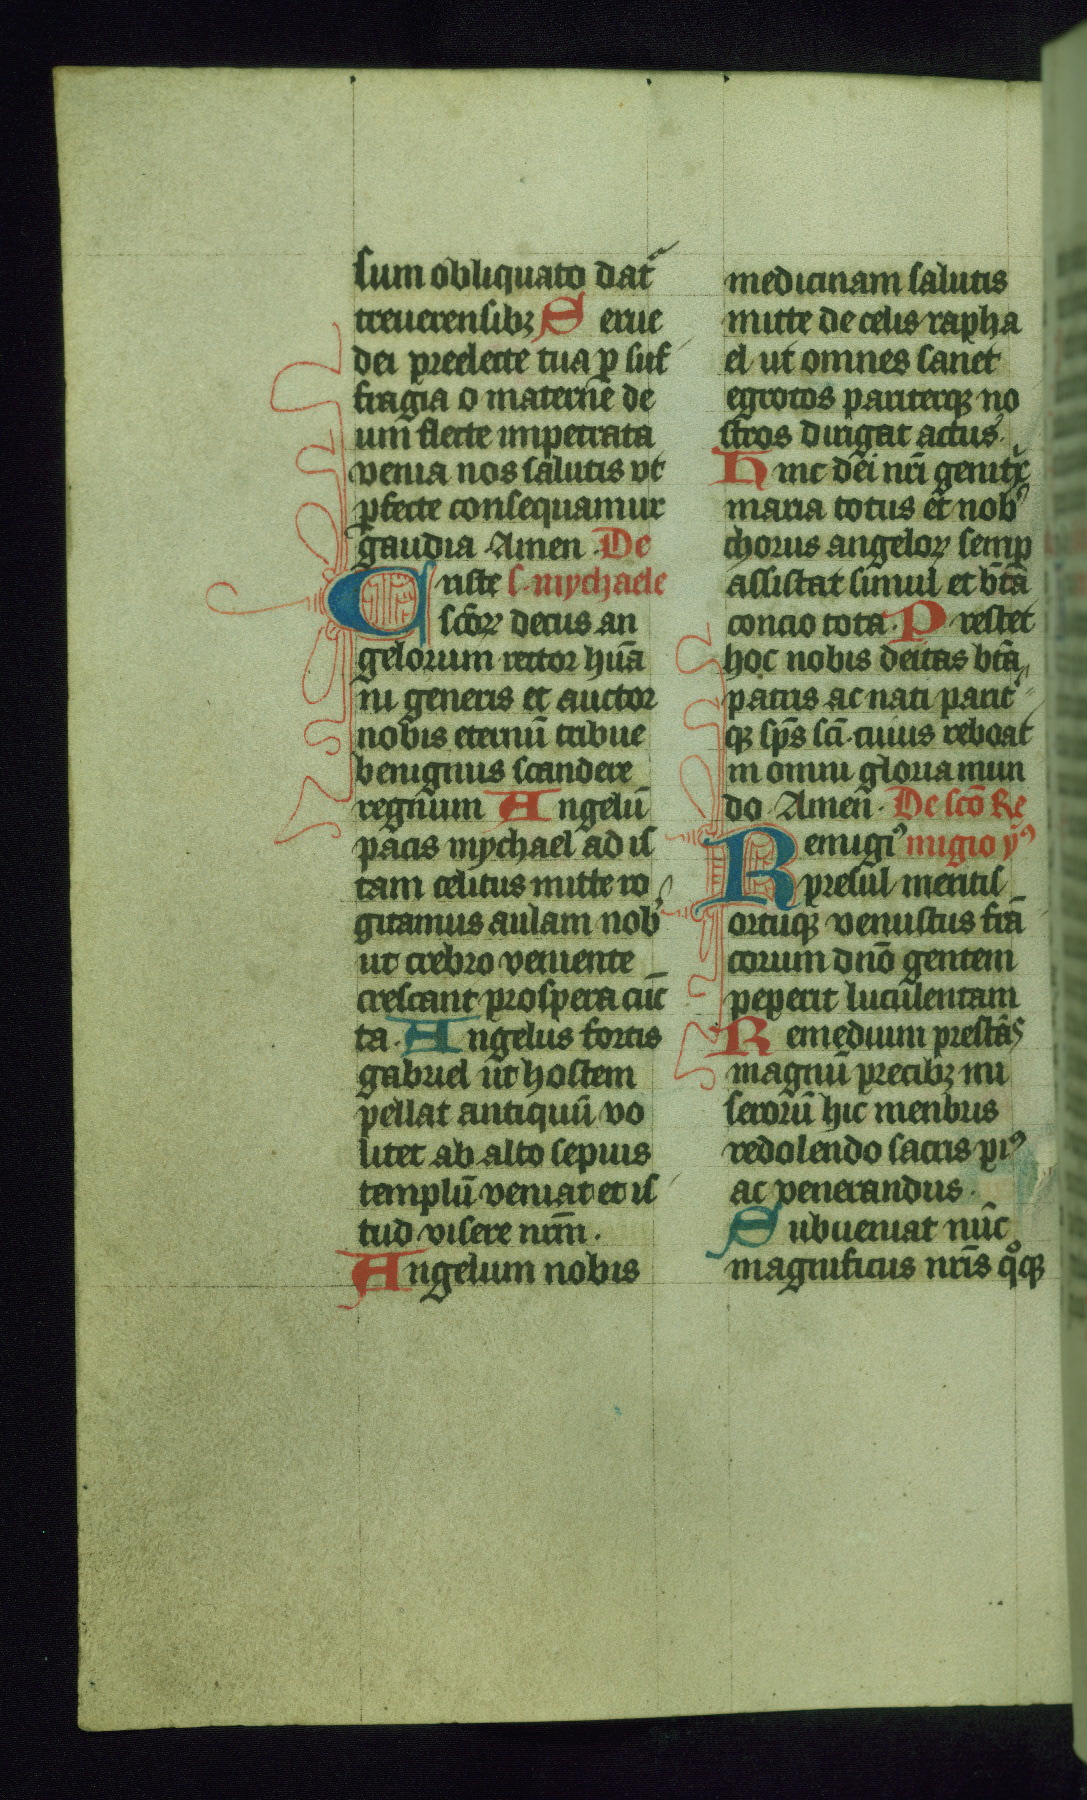 sum obliquato dat̄
treuerensibꝫ S erue
dei preelecte tua ꝑ suf
fragia o materne de
um flecte impetrata
venia nos salutis vt
ꝑfecte consequamur
gaudia Amen De
C riste s. mychaele
sctoꝝ decus an
gelorum rector hūa
ni generis et auctor
nobis eternū tribue
benignus scandere
regnum Angelū
pacis mychael ad is
tam celitus mitte ro
gitamus aulam nobꝰ
ut crebro veniente
crescant prospera cūc
ta. Angelus fortis
gabriel ut hostem
pellat antiquū vo
litet ab alto sepius
templū veniat et is
tud visere nr̄m.
Angelum nobis
medicinam salutis
mitte de celis rapha
el ut omnes sanet
egrotos pariterqꝫ no
stros dirigat actus.
Hinc dēi nr̄i genitᵢx
maria totus et nobꝰ
chorus angeloꝝ semꝑ
assistat simul et bt̄a
concio tota. Prestet
hoc nobis deitas bt̄a
patris ac nati parit̉
qꝫ sp̄s sc̄i. cuius reboat
in omni gloria mun
do Amen. De sc̄o Re
Remigiꝰ migio yꝰ
presul meritis
ortuqꝫ venustus frā
corum dn̄o gentem
peperit luculentam
Remedium prestās
magnū precibꝫ mi
serorū hic menbris
redolendo sacris piꝰ
ac venerandus.
Subueniat nūc
magnificus nr̄is qͦqꝫ